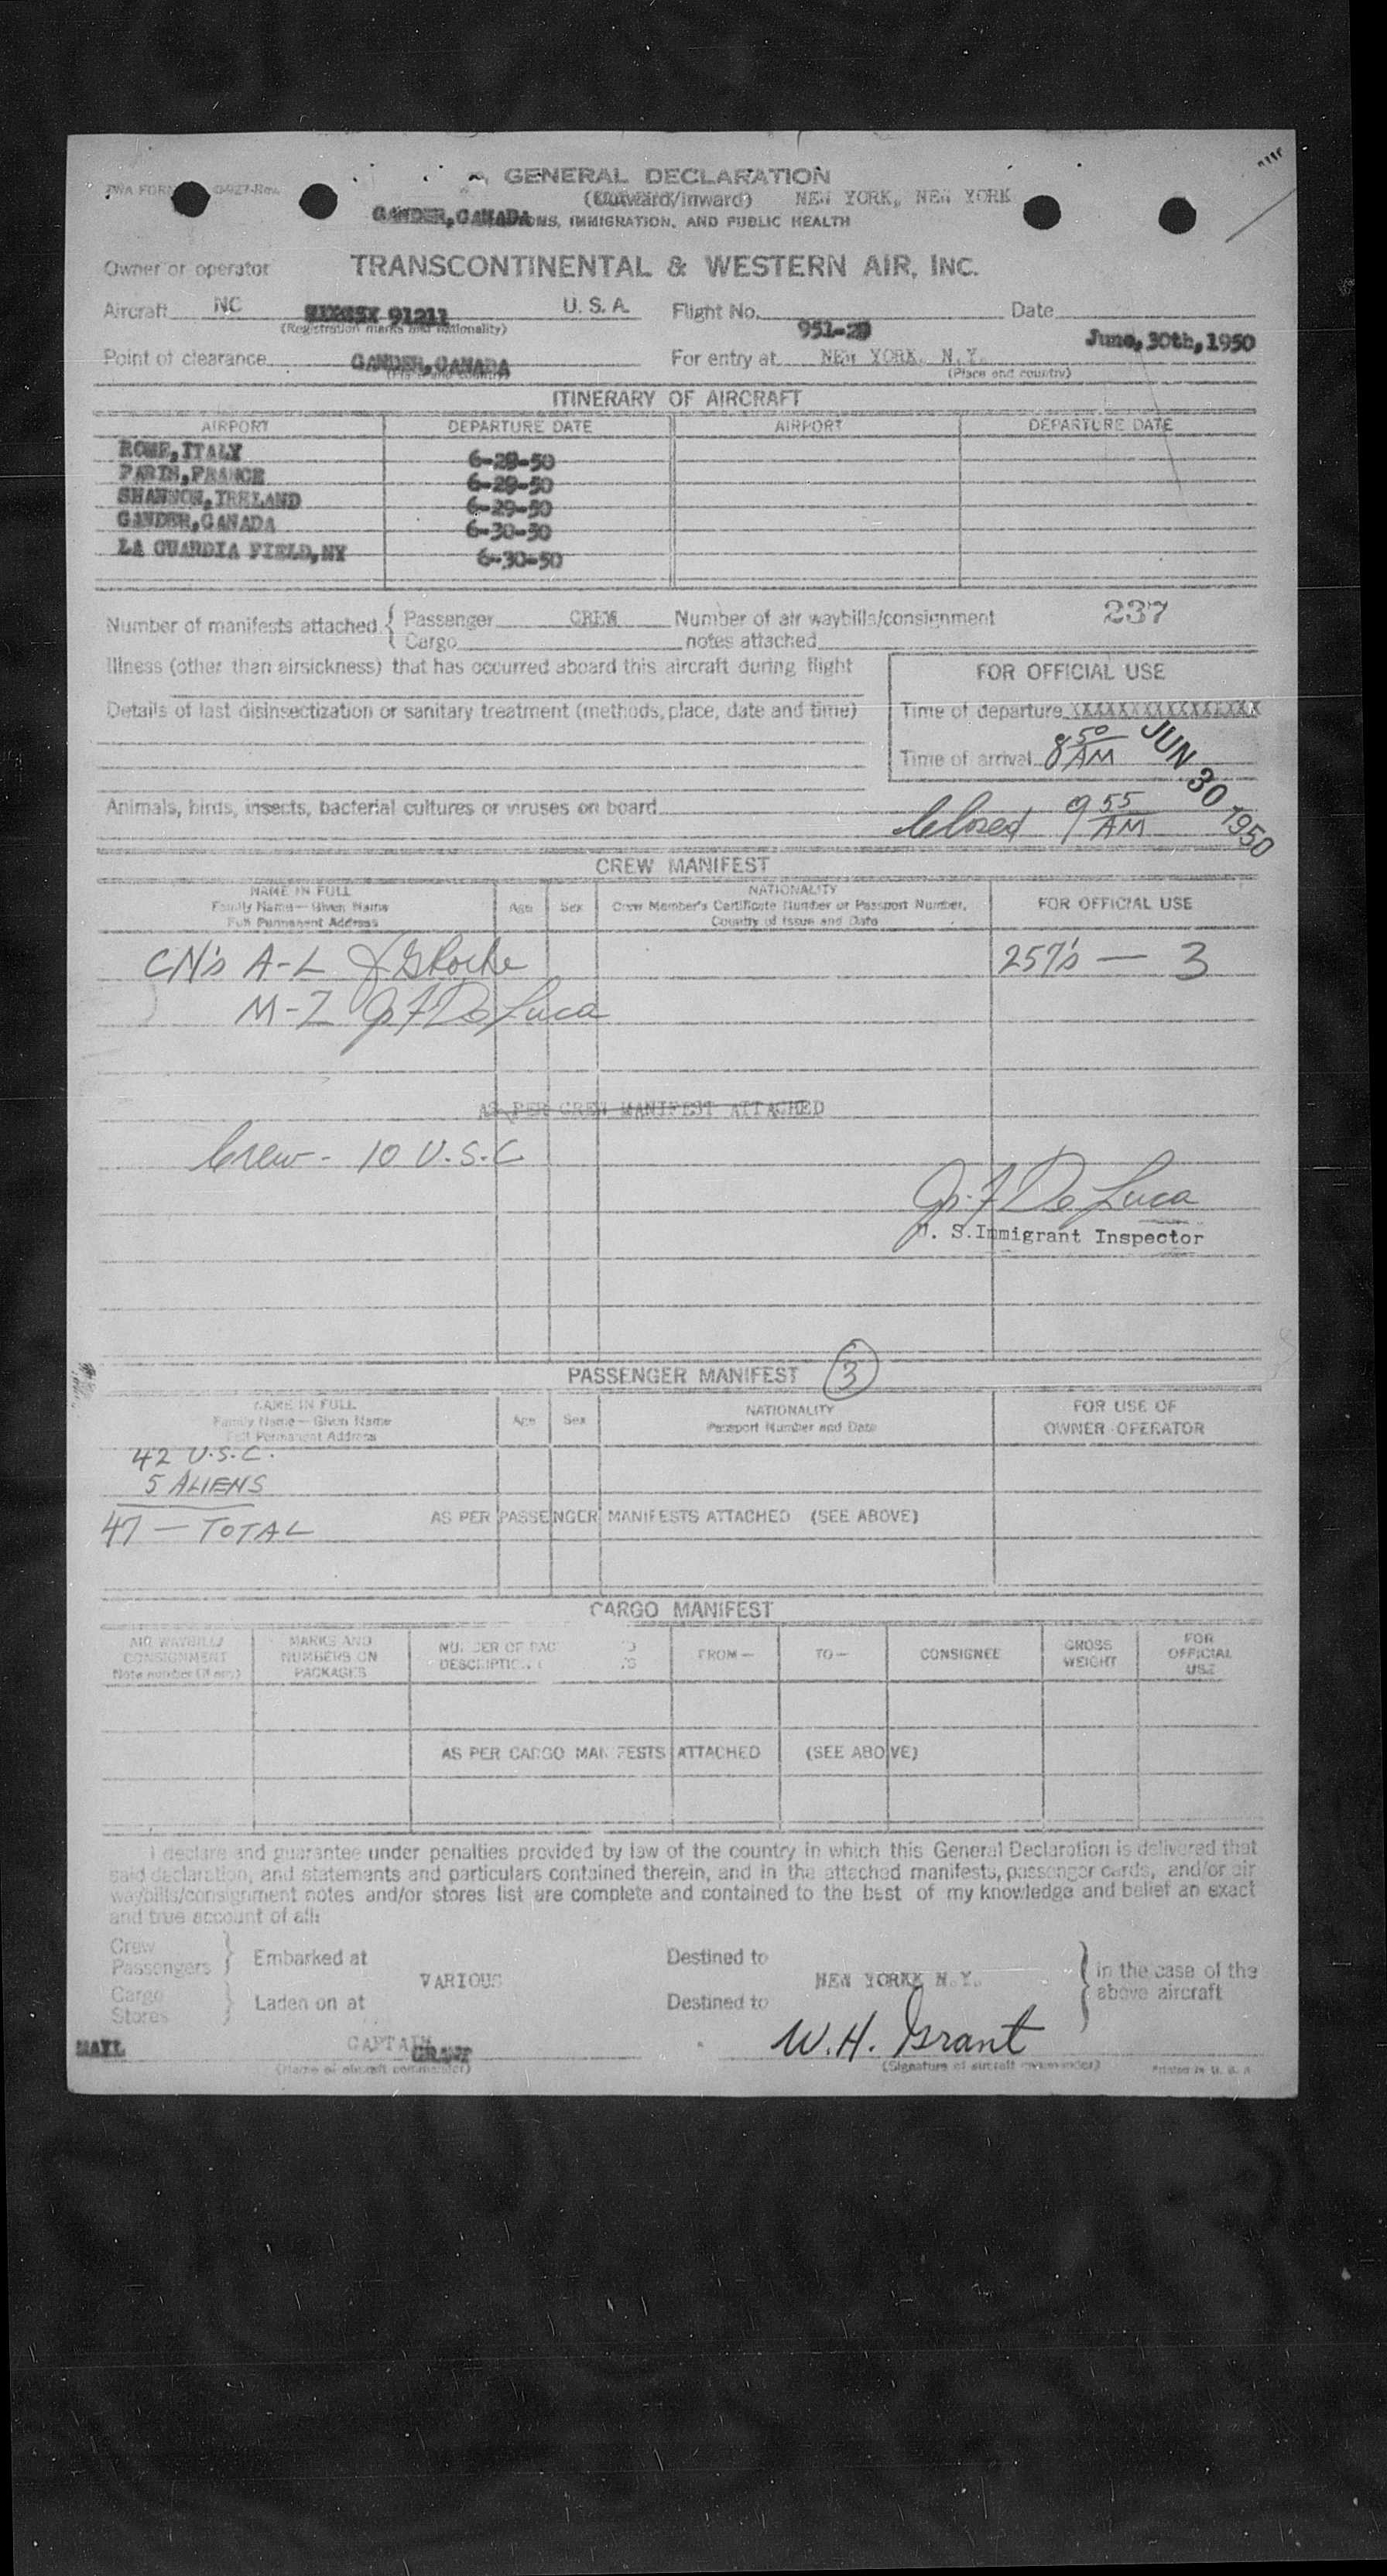 TWA FORM
GENERAL DECLARATION
(Outward/Inward) NEW YORK, NEW YORK
GANDER,CANADA OMS, IMMIGRATION, AND PUBLIC HEALTH
Owner or operator TRANSCONTINENTAL & WESTERN AIR, INC.
Aircraft NC 91211 U. S. A. Flight No. 951-29 Date June, 30th, 1950
(Registration marks and nationality)
Point of clearance GANDER,CANADA For entry at NEW YORK, N.Y.
(Place and country) (Place and country)
ITINERARY OF AIRCRAFT
AIRPORT DEPARTURE DATE AIRPORT DEPARTURE DATE
ROME,ITALY 6-28-50
PARIS,FRANCE 6-29-50
SHANNON,IRELAND 6-29-50
GANDER,CANADA 6-30-50
LA GUARDIA FIELD,NY 6-30-50
237
Number of manifests attached { Passenger CREW Number of air waybills/consignment
Cargo notes attached
Illness (other than airsickness) that has occurred aboard this aircraft during flight
FOR OFFICIAL USE
Details of last disinsectization or sanitary treatment (methods, place, date and time)
Time of departure XXXXXXXXXXXXXXXX
Time of arrival 8 50 AM JUN 30 1950
Animals, birds, insects, bacterial cultures or viruses on board
Closed 9 55 AM
CREW MANIFEST
NAME IN FULL
Family Name—Given Name
Full Permanent Address
Age Sex
NATIONALITY
Crew Member's Certificate Number or Passport Number,
Country of Issue and Date
FOR OFFICIAL USE
CN's A-L J G Roche 257's — 3
M-Z J. F. De Luca
AS PER CREW MANIFEST ATTACHED
Crew - 10 U.S.C.
J. F. De Luca
U. S. Immigrant Inspector
PASSENGER MANIFEST 3
NAME IN FULL
Family Name—Given Name
Full Permanent Address
Age Sex
NATIONALITY
Passport Number and Date
FOR USE OF
OWNER-OPERATOR
42 U.S.C.
5 ALIENS
47 — TOTAL
AS PER PASSENGER MANIFESTS ATTACHED (SEE ABOVE)
CARGO MANIFEST
AIR WAYBILL/
CONSIGNMENT
Note number (if any)
MARKS AND
NUMBERS ON
PACKAGES
NUMBER OF PAC
DESCRIPTION
FROM— TO— CONSIGNEE
GROSS
WEIGHT
FOR
OFFICIAL
USE
AS PER CARGO MANIFESTS ATTACHED (SEE ABOVE)
I declare and guarantee under penalties provided by law of the country in which this General Declaration is delivered that
said declaration, and statements and particulars contained therein, and in the attached manifests, passenger cards, and/or air
waybills/consignment notes and/or stores list are complete and contained to the best of my knowledge and belief an exact
and true account of all:
Crew
Passengers } Embarked at Destined to
VARIOUS NEW YORK N.Y.
Cargo
Stores } Laden on at Destined to
} in the case of the
above aircraft
MAIL CAPTAIN GRANT W.H. Grant
(Name of aircraft commander) (Signature of aircraft commander) Printed in U. S. A.